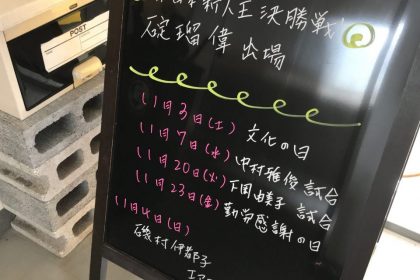 POST
新人王決勝戦
碇瑠偉出場
11月3日(土) 文化の日
11月7日(水) 中村雅俊試合
11月20日(火) 下岡由美子 試合
11月23日(金) 勤労感謝の日
11月4日(日)
磯村伊都子